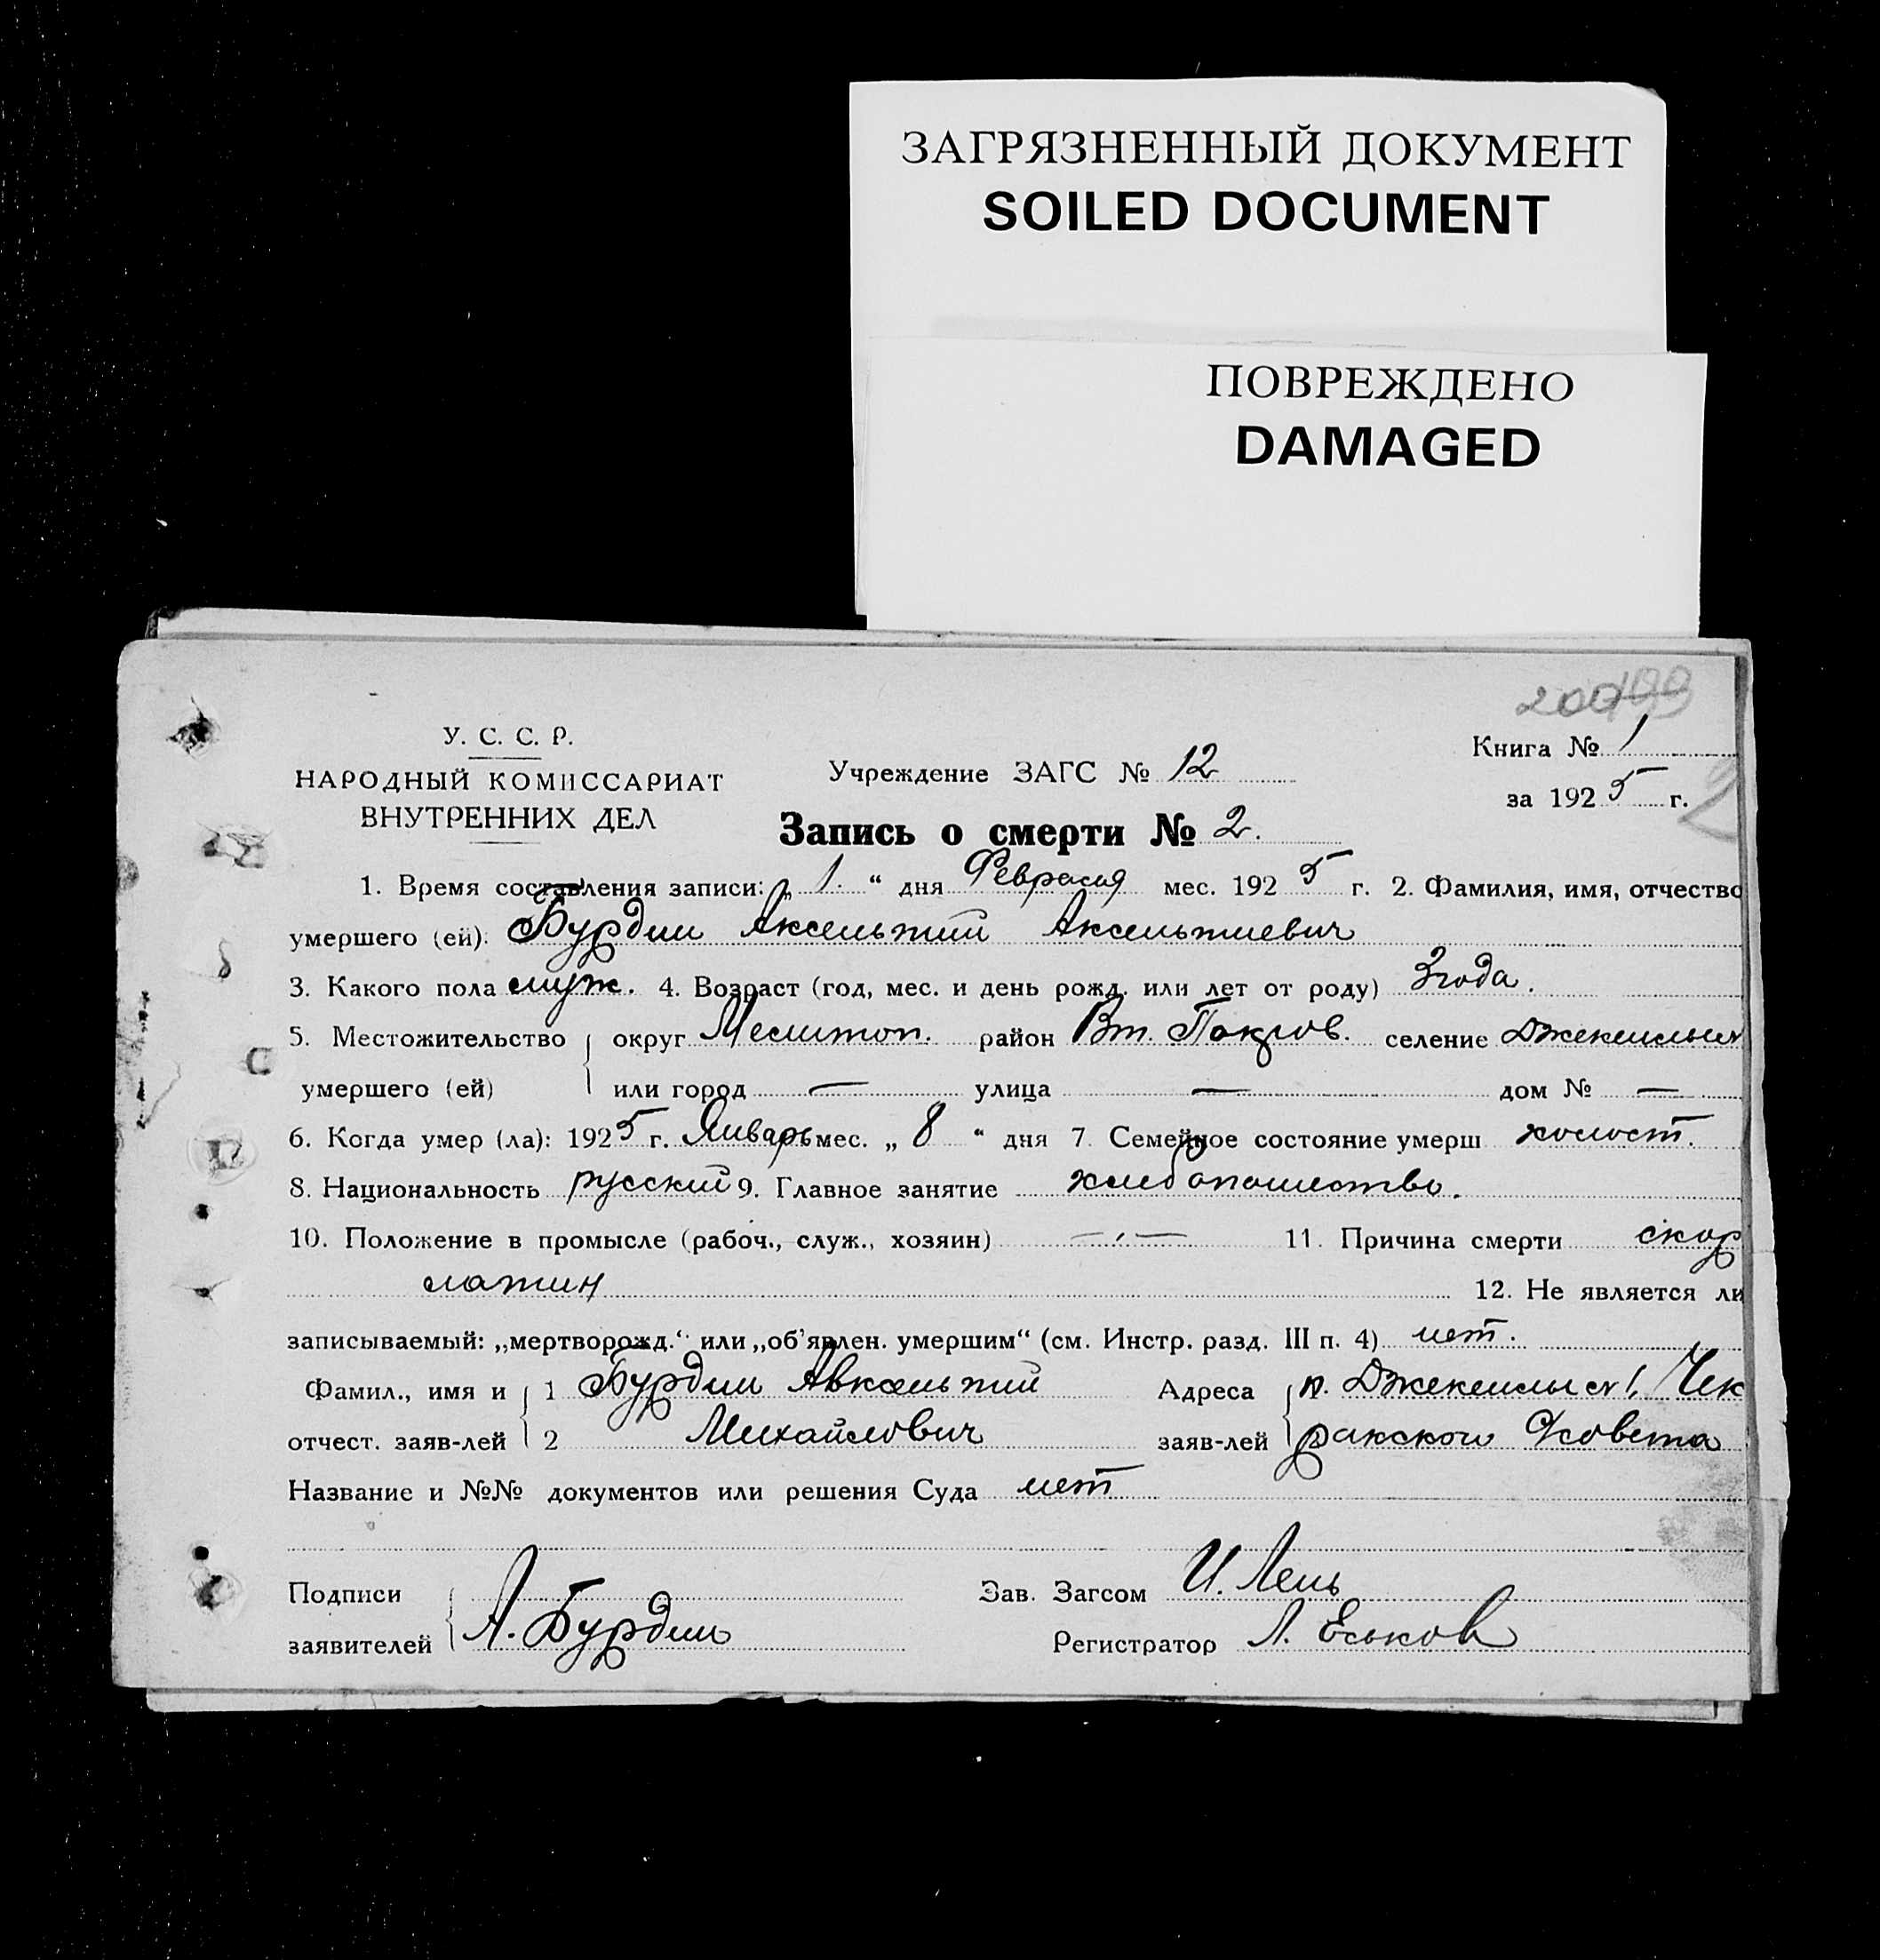 ЗАГРЯЗНЕННЫЙ ДОКУМЕНТ
SOILED DOCUMENT
ПОВРЕЖДЕНО
DAMAGED
200 199
У. С. С. Р.
НАРОДНЫЙ КОМИССАРИАТ
ВНУТРЕННИХ ДЕЛ
Учреждение ЗАГС № 12
Книга № 1
за 1925 г.
Запись о смерти № 2.
1. Время составления записи: „ 1. “ дня Февраля мес. 1925 г. 2. Фамилия, имя, отчество
умершего (ей): Бурдин Аксентий Аксентиевич
3. Какого пола муж. 4. Возраст (год, мес. и день рожд. или лет от роду) 3 года.
5. Местожительство округ Мелитоп. район Вт. Покров. селение
умершего (ей) или город — улица — дом № —
6. Когда умер (ла): 1925 г. Январь мес. „ 8 “ дня 7. Семейное состояние умерш холост.
8. Национальность русский 9. Главное занятие хлебопашество.
10. Положение в промысле (рабоч., служ., хозяин) —„— 11. Причина смерти скар
латин 12. Не является ли
записываемый: „мертворожд.“ или „об'явлен. умершим“ (см. Инстр. разд. III п. 4) нет.
Фамил., имя и 1 Бурдин Авксентий Адреса
отчест. заяв-лей 2 Михайлович заяв-лей ракской С/совета
Название и №№ документов или решения Суда нет
Подписи Зав. Загсом И. Лень
заявителей А. Бурдин Регистратор Л. Еськов